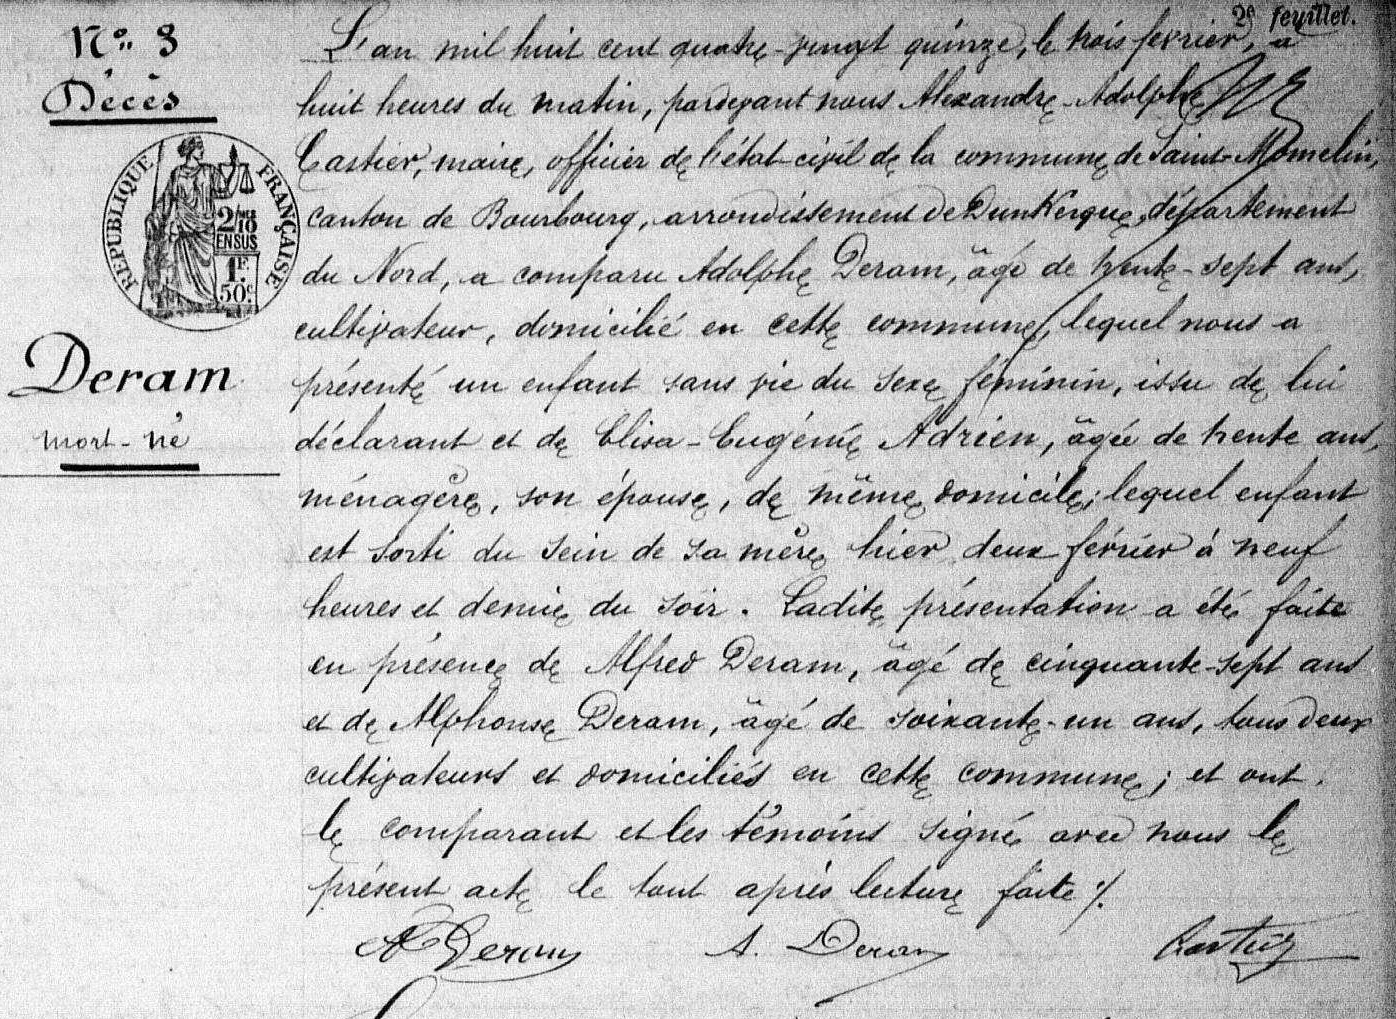 2e feuillet.
N° 3
Décès
RÉPUBLIQUE FRANÇAISE
2/10
EN SUS
1F
50c
Deram
mort-né
L'an mil huit cent quatre-vingt quinze, le trois février, à
huit heures du matin, pardevant nous Alexandre-Adolphe
Castier, maire, officier de l'état-civil de la commune de Saint-Momelin,
canton de Bourbourg, arrondissement de Dunkerque, département
du Nord, a comparu Adolphe Deram, âgé de trente-sept ans,
cultivateur, domicilié en cette commune, lequel nous a
présenté un enfant sans vie du sexe féminin, issu de lui
déclarant et de Elisa-Eugénie Adrien, âgée de trente ans,
ménagère, son épouse, de même domicile; lequel enfant
est sorti du sein de sa mère hier deux février à neuf
heures et demie du soir. Ladite présentation a été faite
en présence de Alfred Deram, âgé de cinquante-sept ans
et de Alphonse Deram, âgé de soixante-un ans, tous deux
cultivateurs et domiciliés en cette commune; et ont
le comparant et les témoins signé avec nous le
présent acte le tout après lecture faite ./.
A Deram A. Deram Castier